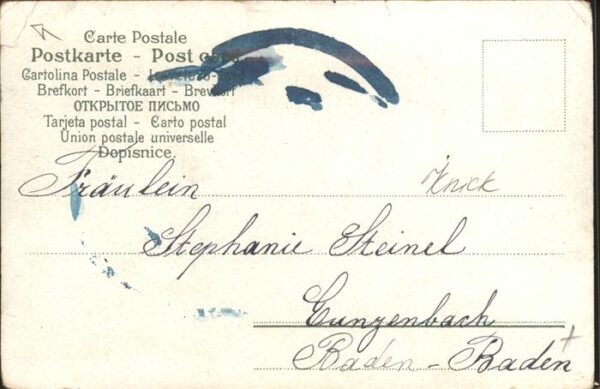 Carte Postale
Postkarte - Post card
Cartolina Postale -
Brefkort - Briefkaart - Brevkort
ОТКРЫТОЕ ПИСЬМО
Tarjeta postal - Carto postal
Union postale universelle
Dopisnice
Fräulein
Knick
Stephanie Steinel
Gungenbach
Baden - Baden